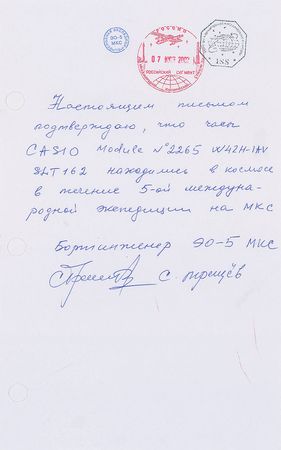 ЭО-5
МКС
07 ИЮЛ 2002
РОССИЙСКИЙ СЕГМЕНТ
ISS
Настоящим письмом
подтверждаю, что часы
CASIO Module N°2265 W42H-1AV
SLT162 находились в космосе
в течение 5-ой междуна-
родной экспедиции на МКС
Бортинженер ЭО-5 МКС
С. Трещёв